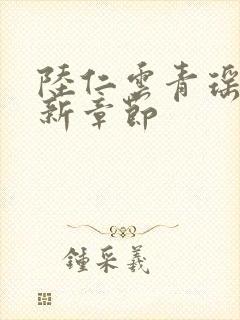 陸仁雲青瑤
新章節
鍾采羲